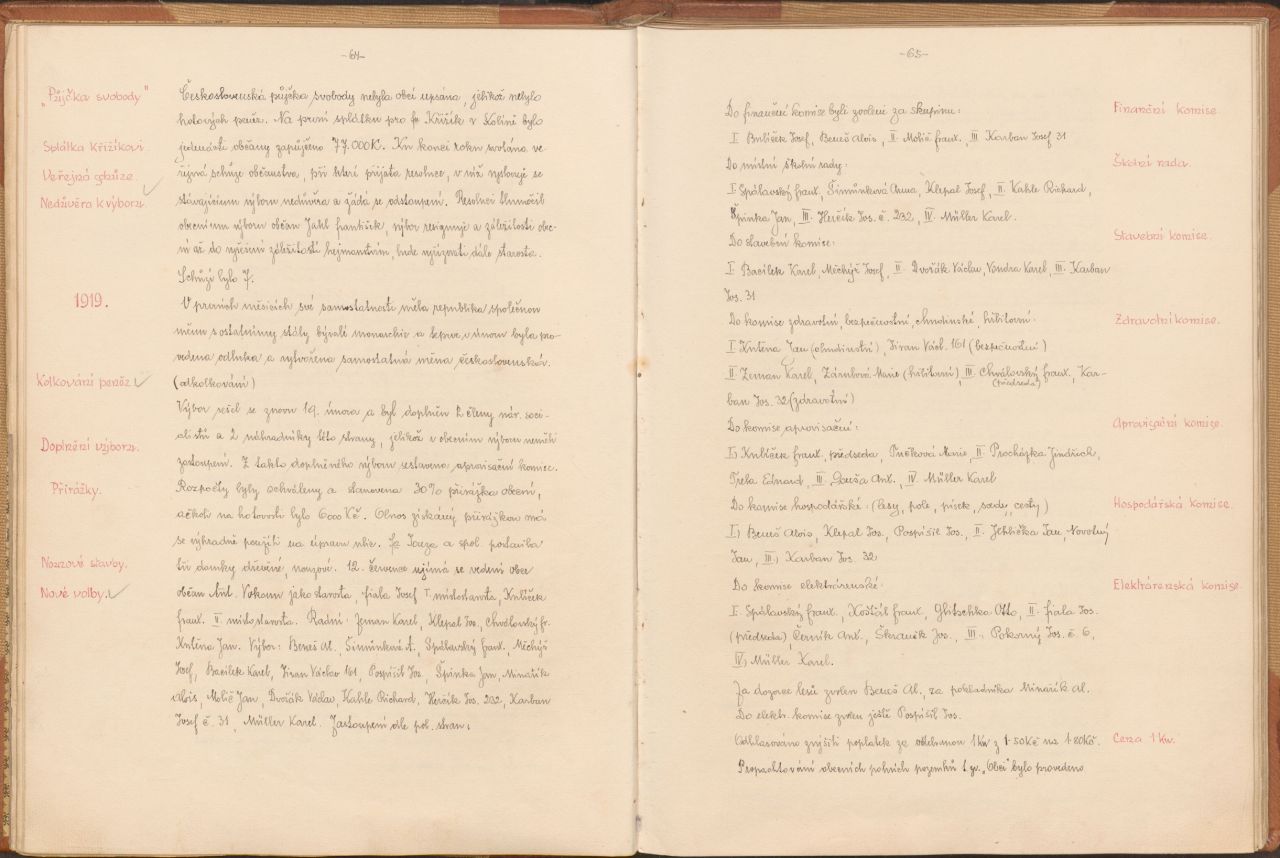 -64-
"Půjčka svobody"
Československá půjčka svobody nebyla obcí upsána, jelikož nebylo
hotových peněz. Na první splátku pro fu Křižík v Kolíně bylo
Splátka Křižíkovi
jedenácti občany zapůjčeno 77.000K. Ku konci roku svolána ve-
Veřejná schůze.
řejná schůze občanstva, při které přijata resoluce, v níž vyslovuje se
Nedůvěra k výboru.
stávajícímu výboru nedůvěra a žádá se odstoupení. Resoluci tlumočil
obecnímu výboru občan Jakl František, výbor resignuje a záležitosti obec-
ní až do vyřízení záležitosti hejmanstvím, bude vyřizovati dále starosta.
Schůzí bylo 7.
1919.
V prvních měsících své samostatnosti měla republika společnou
měnu s ostatními státy bývalé monarchie a teprve v únoru byla pro-
vedena odluka a vytvořena samostatná měna československá.
Kolkování peněz.
(odkolkování)
Výbor sešel se znovu 19. února a byl doplněn 2 členy nár. soci-
Doplnění výboru.
alistů a 2 náhradníky této strany, jelikož v obecním výboru neměli
zastoupení. Z takto doplněného výboru sestavena aprovisační komise.
Přirážky.
Rozpočty byly schváleny a stanovena 30% přirážka obecní,
ačkoli na hotovosti bylo 6000 Kč. Obnos získaný přirážkou má
se výhradně použíti na úpravu ulic. Fa Souza a spol. postavila
Nouzové stavby.
tři domky dřevěné, nouzové. 12. července ujímá se vedení obce
Nové volby.
občan Ant. Vokoun jako starosta, Fiala Josef I. místostarosta, Kubíček
Frant. II místostarosta. Radní: Zeman Karel, Klepal Jos., Chválovský Fr.
Kutěna Jan. Výbor: Beneš Al. Šimůnková A., Spálavský Frant., Měchýř
Josef, Bacílek Karel, Jiran Václav 161, Pospíšil Jos., Špinka Jan, Minařík
Alois, Molič Jan, Dvořák Václav, Kahle Richard, Herčík Jos. 232, Karban
Josef č. 31, Müller Karel. Zastoupení dle pol. stran:
-65-
Do finanční komise byli zvoleni za skupinu:
Finanční komise
I Kubíček Josef, Beneš Alois, II Molič Frant., III Karban Josef 31
Do místní školní rady:
Školní rada.
I Spálavský Frant., Šimůnková Anna, Klepal Josef, II. Kahle Richard,
Špinka Jan, III. Herčík Jos. č. 232, IV. Müller Karel.
Do stavební komise:
Stavební komise.
I Bacílek Karel, Měchýř Josef, II. Dvořák Václav, Vondra Karel, III. Karban
Jos. 31
Do komise zdravotní, bezpečnostní, chudinské, hřbitovní:
Zdravotní komise.
I Kutěna Jan (chudinství), Jiran Václ. 161 (bezpečnostní)
II Zeman Karel, Zárubová Marie (hřbitovní), III. Chválovský Frant., Kar-
(předseda)
ban Jos. 32 (zdravotní)
Do komise aprovisační:
Aprovisační komise.
I) Kubíček Frant. předseda, Pučková Marie, II Procházka Jindřich,
Třeba Eduard, III Souša Ant., IV Müller Karel
Do komise hospodářské: (lesy, pole, písek, sady, cesty)
Hospodářská komise.
I) Beneš Alois, Klepal Jos., Pospíšil Jos., II. Jehlička Jan, Novotný
Jan, III) Karban Jos. 32
Do komise elektrárenské:
Elektrárenská komise.
I Spálavský Frant., Košťál Frant., Glitschka Otto, II. Fiala Jos.
(předseda) Černík Ant., Škravík Jos., III. Pokorný Jos. č 6,
IV) Müller Karel.
Za dozorce lesů zvolen Beneš Al., za pokladníka Minařík Al.
Do elektr. komise zvolen ještě Pospíšil Jos.
Odhlasováno zvýšiti poplatek za odebranou 1Kw z 1·50Kč na 1·80Kč.
Cena 1 Kw.
Propachtování obecních polních pozemků t. zv. „Obcí" bylo provedeno